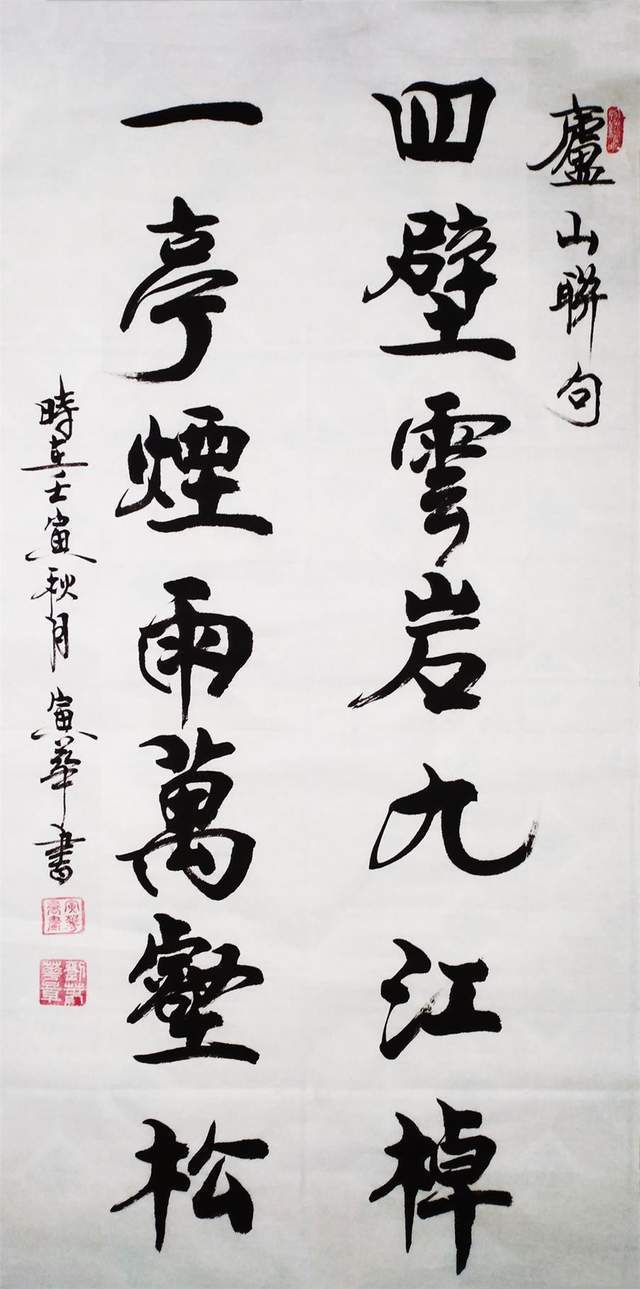 廬山聯句
四壁雲岩九江棹
一亭煙雨萬壑松
時在壬寅秋月寅華書